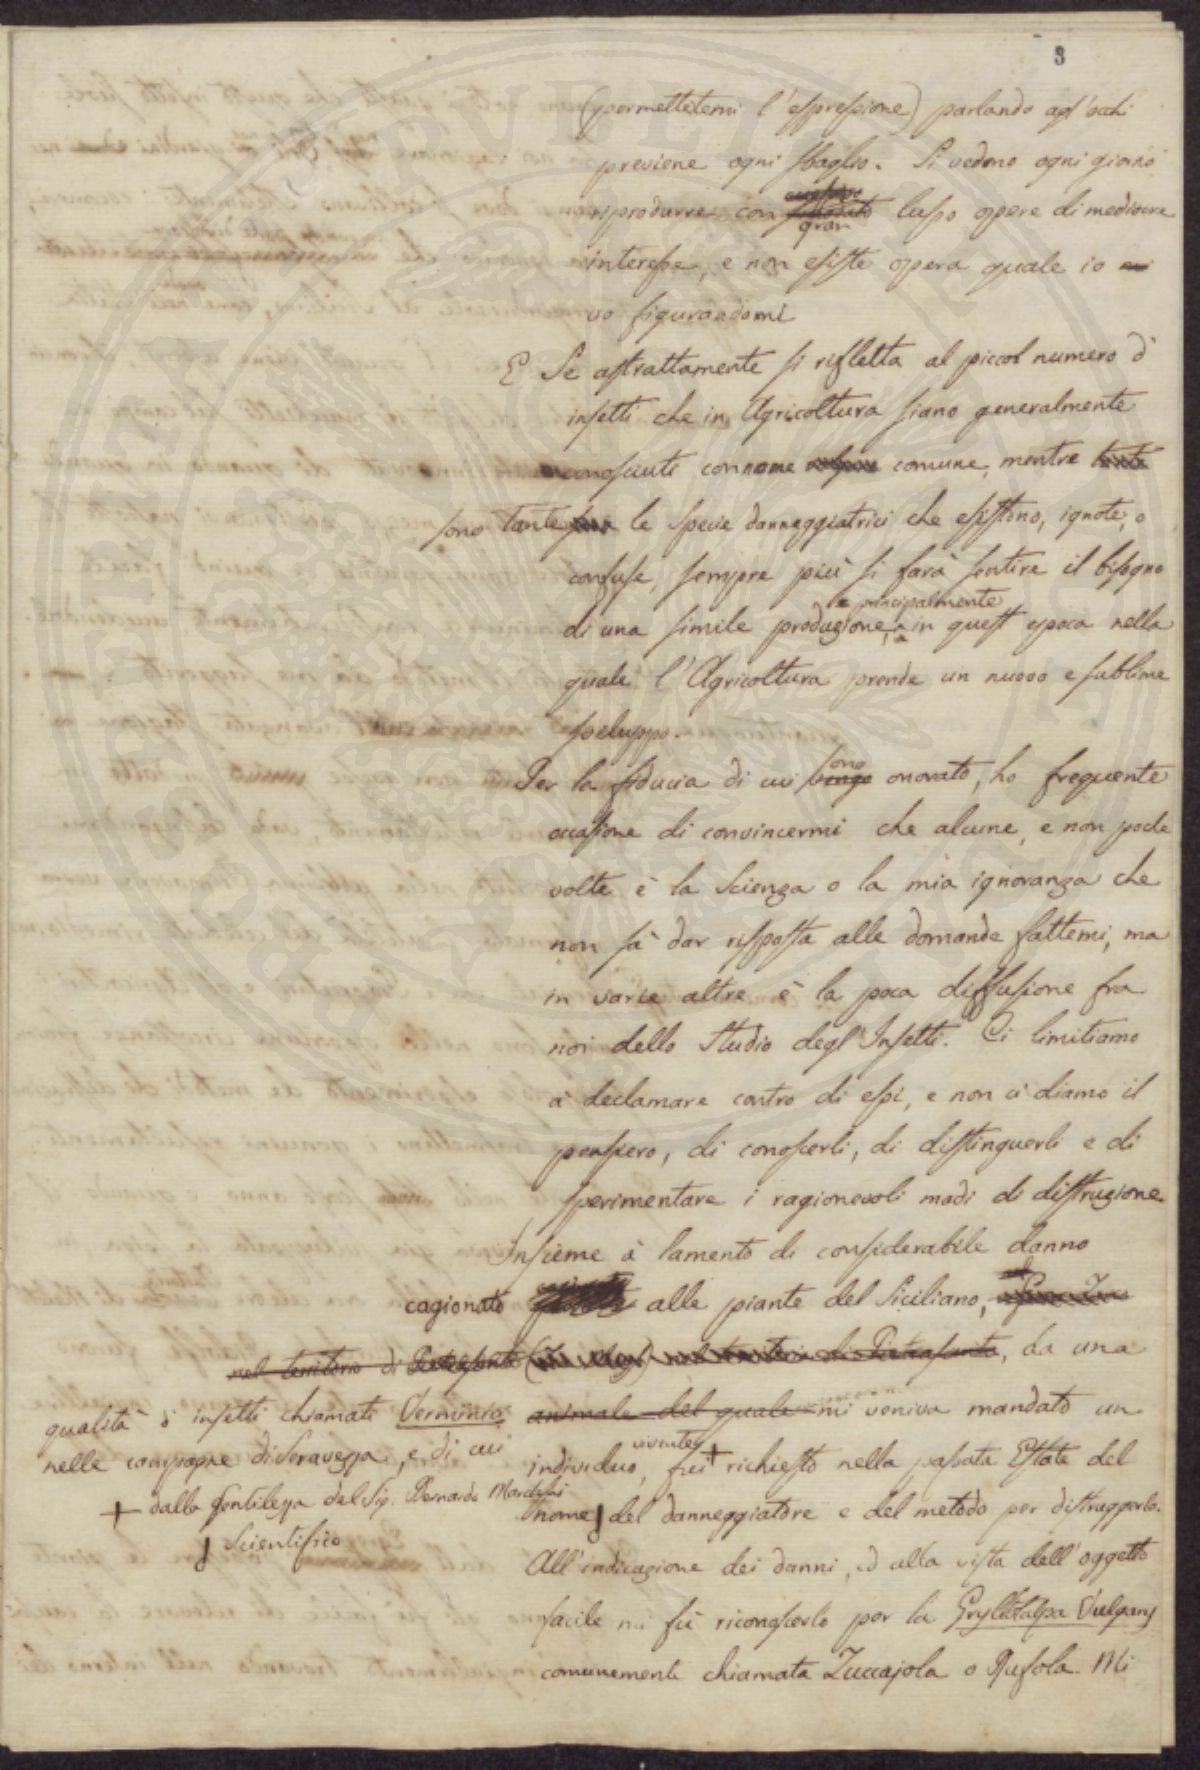 3
(permettetemi l'espressione) parlando agl'occhi
previene ogni sbaglio. Si vedono ogni giorno
riprodurre con gran lusso opere di mediocre
interesse, e non esiste opera quale io
vo figurandomi
E Se astrattamente si rifletta al piccol numero d'
insetti che in Agricoltura siano generalmente
conosciuti con nome comune, mentre tante
sono tante le specie danneggiatrici che esistono, ignote, o
confuse, sempre più si farà sentire il bisogno
e principalmente
di una simile produzione, in quest epoca nella
quale l'Agricoltura prende un nuovo e sublime
sviluppo.
sono
Per la fiducia di cui vengo onorato, ho frequente
occasione di convincermi che alcune, e non poche
volte è la Scienza o la mia ignoranza che
non sà dar risposta alle domande fattemi, ma
in varie altre è la poca diffusione fra
noi dello Studio degl'Insetti. Ci limitiamo
a declamare contro di essi, e non ci diamo il
pensiero, di conoscerli, di distinguerli e di
sperimentare i ragionevoli modi di distruzione.
Insieme à lamento di considerabile danno
cagionato alle piante del Siciliano,
nel territorio di Pietrasanta nel territorio di Pietrasanta, da una
qualità d'insetti chiamati Verminia animale del quale mi veniva mandato un
nelle campagne di Seravezza, e di cui
vivente
individuo, + fui richiesto nella passata Estate del
+ dalla gentilezza del Sig. Bernardo Marchini
nome del danneggiatore e del metodo per distruggerlo.
Scientifico
All'indicazione dei danni, ed alla vista dell'oggetto
facile mi fù riconoscerlo per la Gryllotalpa Vulgaris
comunemente chiamata Zuccajola o Rufola. Mi